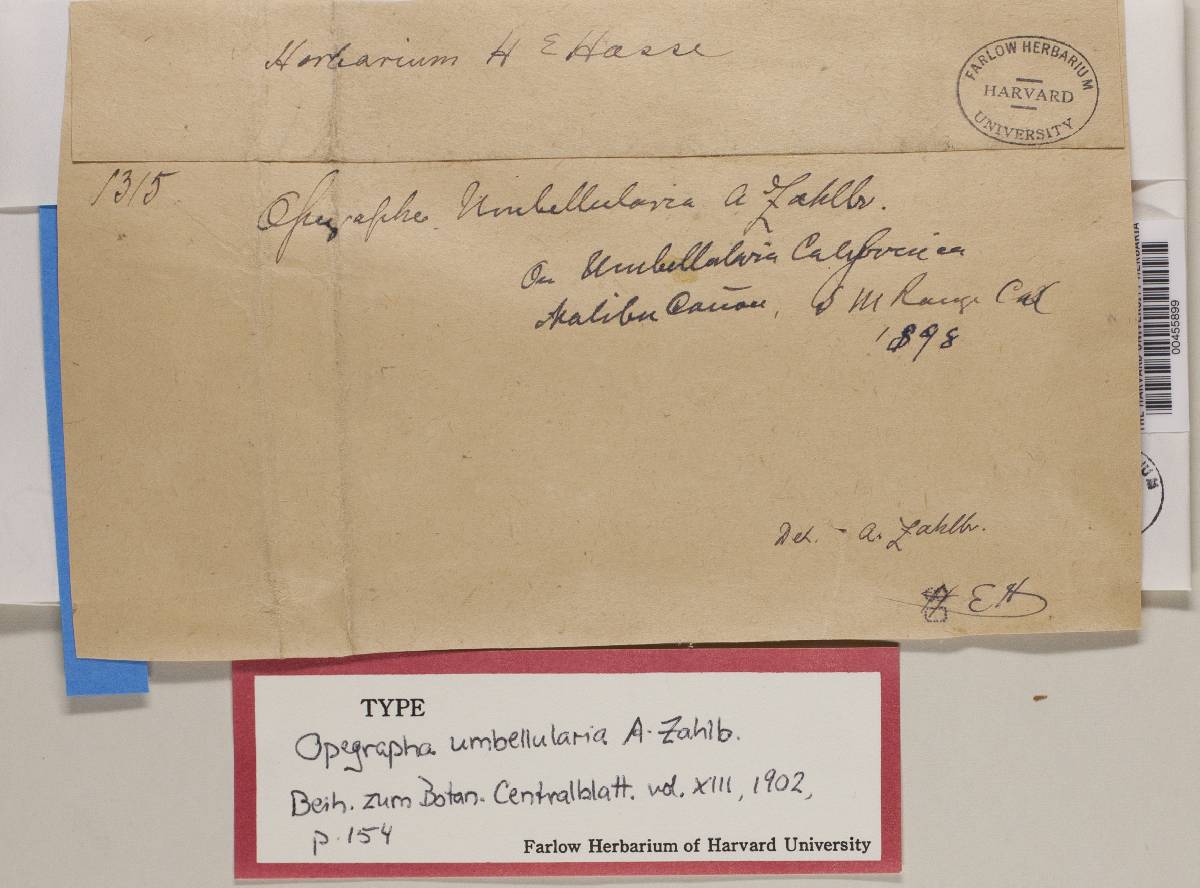 Herbarium H E Hasse
FARLOW HERBARIUM
HARVARD
UNIVERSITY
1315
Opegrapha Umbellularia A Zahlbr.
On Umbellularia Californica
Malibu Cañon, S M Range Cal
1898
Det. - A. Zahlbr.
H E H
00455899
TYPE
Opegrapha umbellularia A. Zahlb.
Beih. zum Botan. Centralblatt. vol. XIII, 1902,
p. 154
Farlow Herbarium of Harvard University